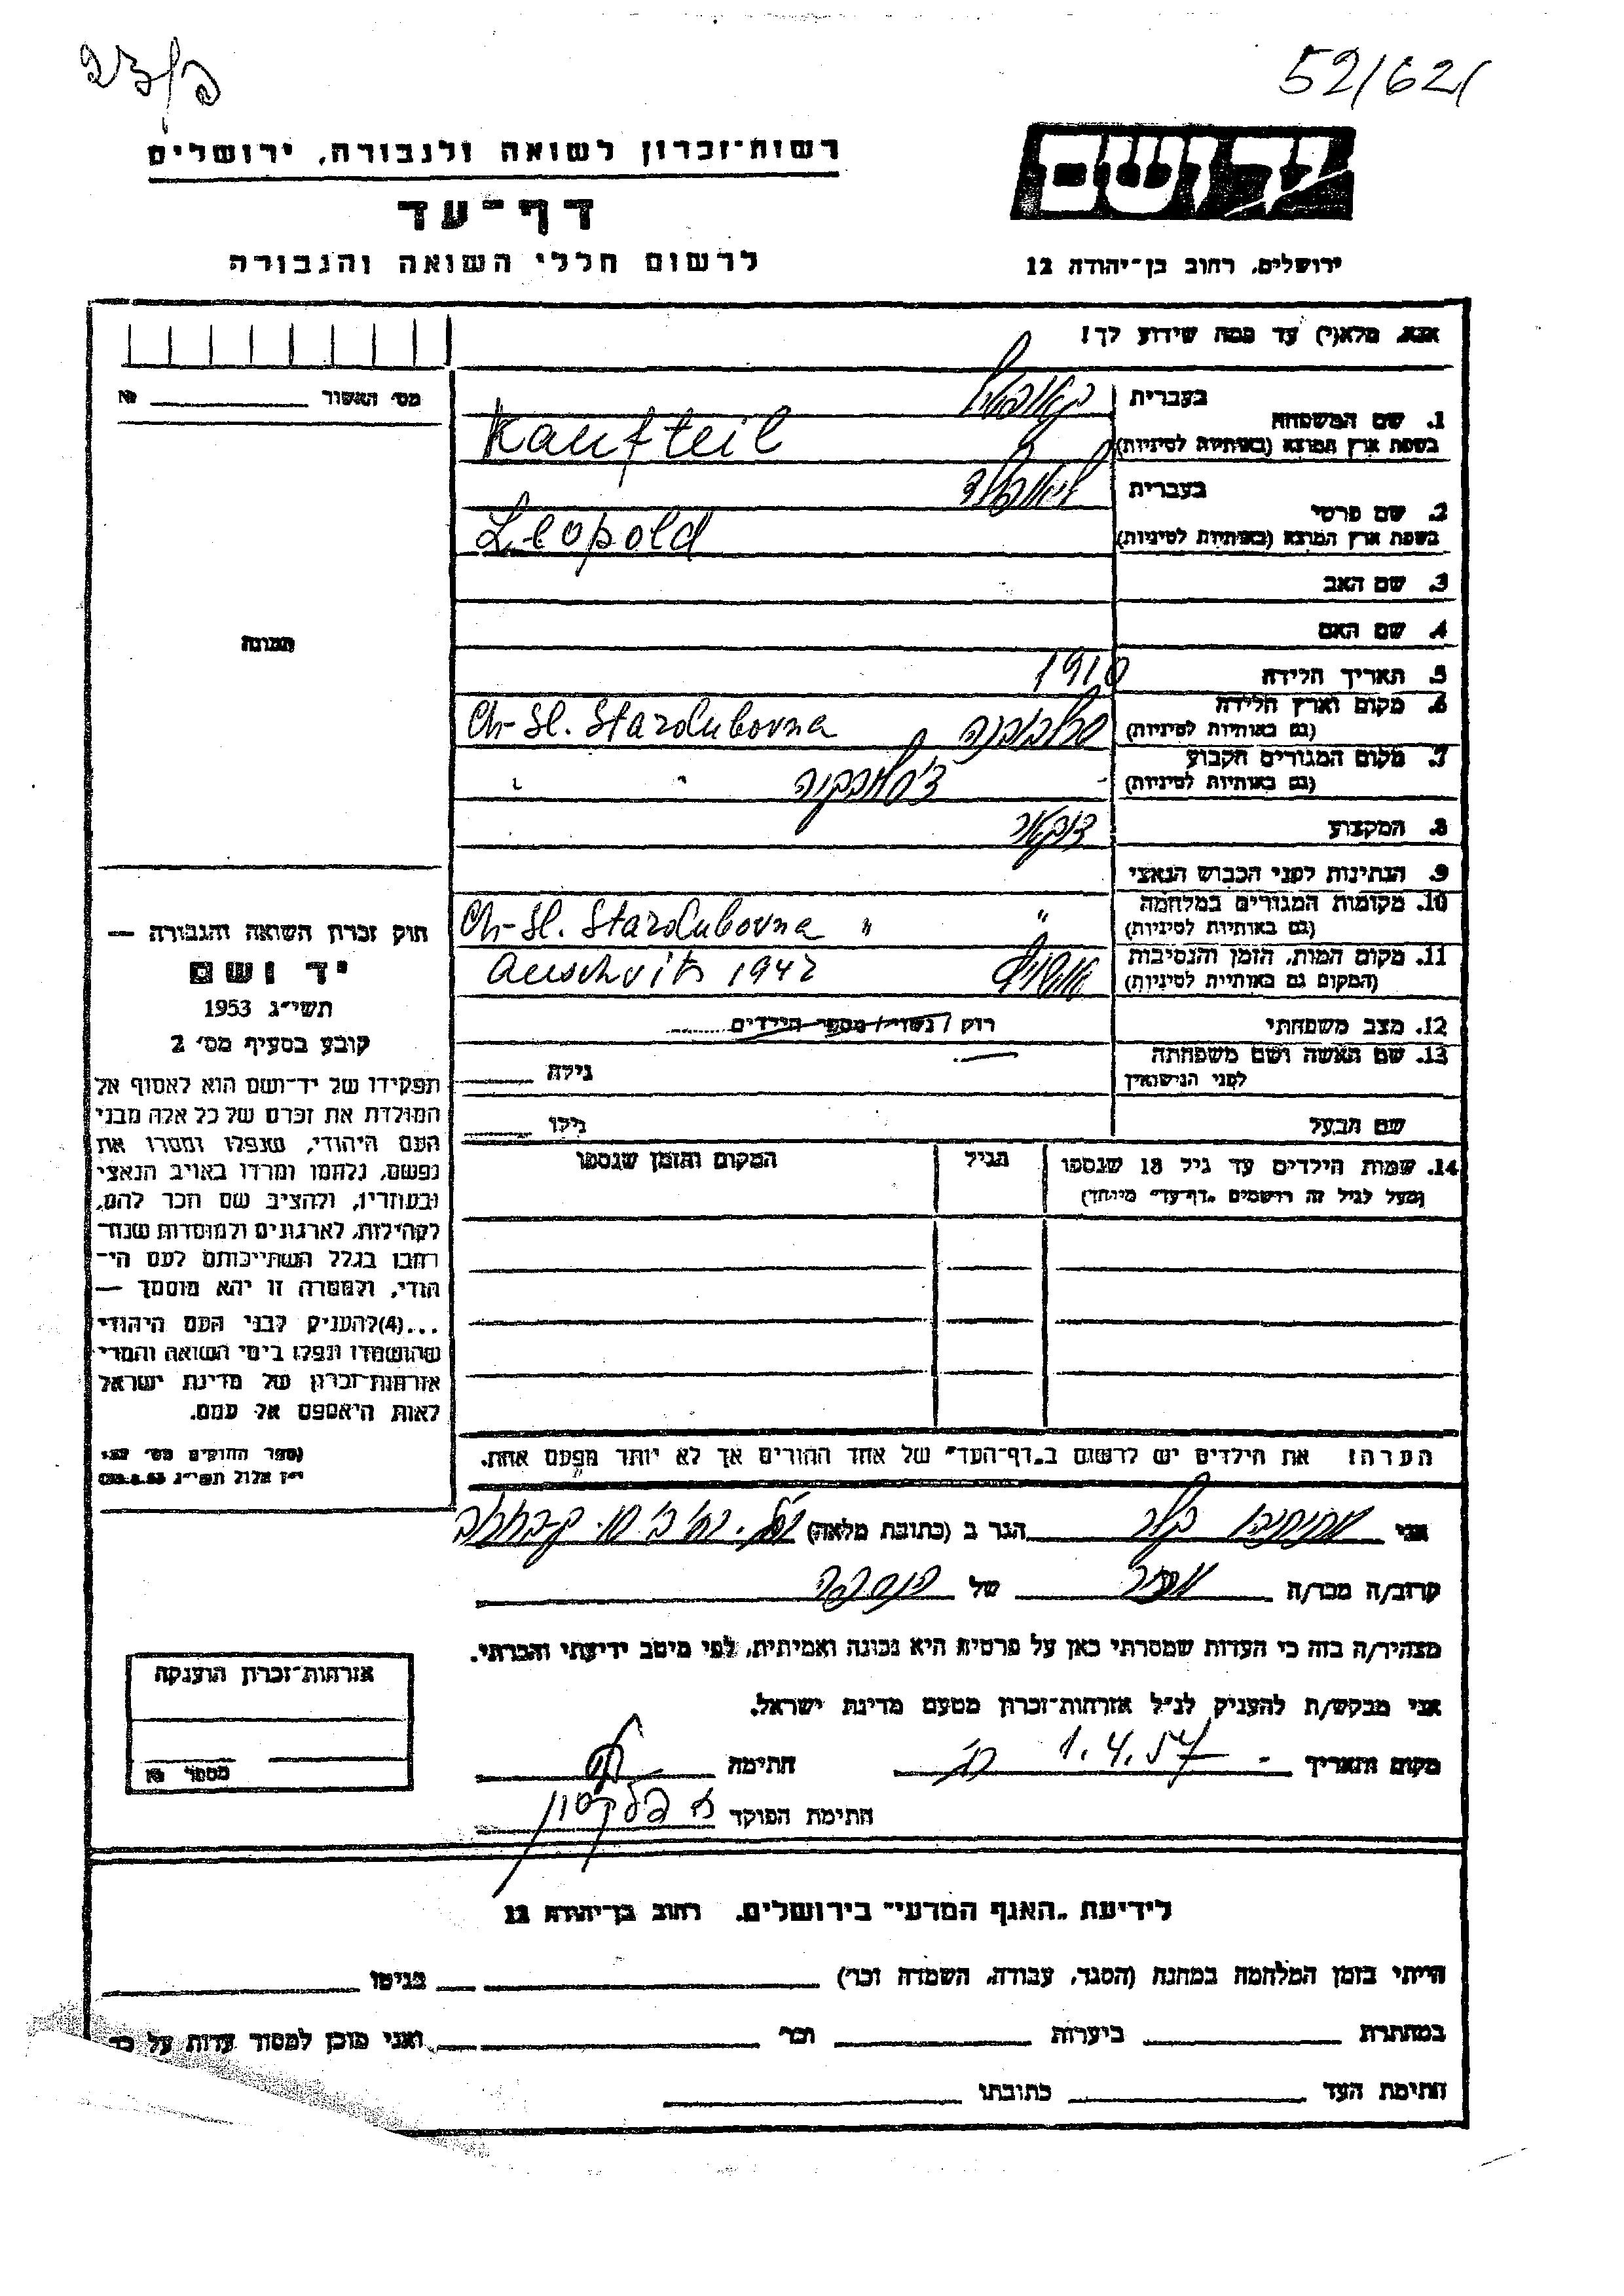 52/621
רשות־זכרון לשואה ולגבורה, ירושלים
דף־עד
לרשום חללי השואה והגבורה
יד ושם
ירושלים, רחוב בן־יהודה 12
אנא, מלא(י) עד כמה שידוע לך!
מס' האשור № 
בעברית
1. שם המשפחה
בשפת ארץ המוצא (באותיות לטיניות) Kaufteil
בעברית לאופולד
2. שם פרטי
בשפת ארץ המוצא (באותיות לטיניות) Leopold
3. שם האב
4. שם האם
תמונה
5. תאריך הלידה 1910
6. מקום וארץ הלידה
(גם באותיות לטיניות) Ch-Sl. Starolubovna
7. מקום המגורים הקבוע
(גם באותיות לטיניות) " "
8. המקצוע
9. הנתינות לפני הכבוש הנאצי
10. מקומות המגורים במלחמה
(גם באותיות לטיניות) " Ch-Sl. Starolubovna "
11. מקום המות, הזמן והנסיבות
(המקום גם באותיות לטיניות) Auschvitz 1942
12. מצב משפחתי רוק / נשוי / מספר הילדים
13. שם האשה ושם משפחתה
לפני הנישואין גילה
שם הבעל גילו
14. שמות הילדים עד גיל 18 שנספו הגיל המקום והזמן שנספו
(מעל לגיל זה רושמים "דף־עד" מיוחד)
חוק זכרון השואה והגבורה —
יד ושם
תשי"ג 1953
קובע בסעיף מס' 2
תפקידו של יד־ושם הוא לאסוף אל
המולדת את זכרם של כל אלה מבני
העם היהודי, שנפלו ומסרו את
נפשם, נלחמו ומרדו באויב הנאצי
ובעוזריו, ולהציב שם וזכר להם,
לקהילות, לארגונים ולמוסדות שנח־
רבו בגלל השתייכותם לעם הי־
הודי, ולמטרה זו יהא מוסמך —
...(4) להעניק לבני העם היהודי
שהושמדו ונפלו בימי השואה והמרי
אזרחות־זכרון של מדינת ישראל
לאות היאספם אל עמם.
(ספר החוקים מס' 132
י"ז אלול תשי"ג 28.8.53)
הערה: את הילדים יש לרשום ב"דף־העד" של אחד ההורים אך לא יותר מפעם אחת.
אני הגר ב (כתובת מלאה)
קרוב/ה מכר/ה של
מצהיר/ה בזה כי העדות שמסרתי כאן על פרטיה היא נכונה ואמיתית, לפי מיטב ידיעתי והכרתי.
אני מבקש/ת להעניק לנ"ל אזרחות־זכרון מטעם מדינת ישראל.
מקום ותאריך 1.4.57 חתימה
חתימת הפוקד
אזרחות־זכרון הוענקה
מספר №
לידיעת "האגף המדעי" בירושלים, רחוב בן־יהודה 12
הייתי בזמן המלחמה במחנה (הסגר, עבודה, השמדה וכר') בגיטו
במחתרת ביערות וכר' ואני מוכן למסור עדות על כך
חתימת העד כתובתו